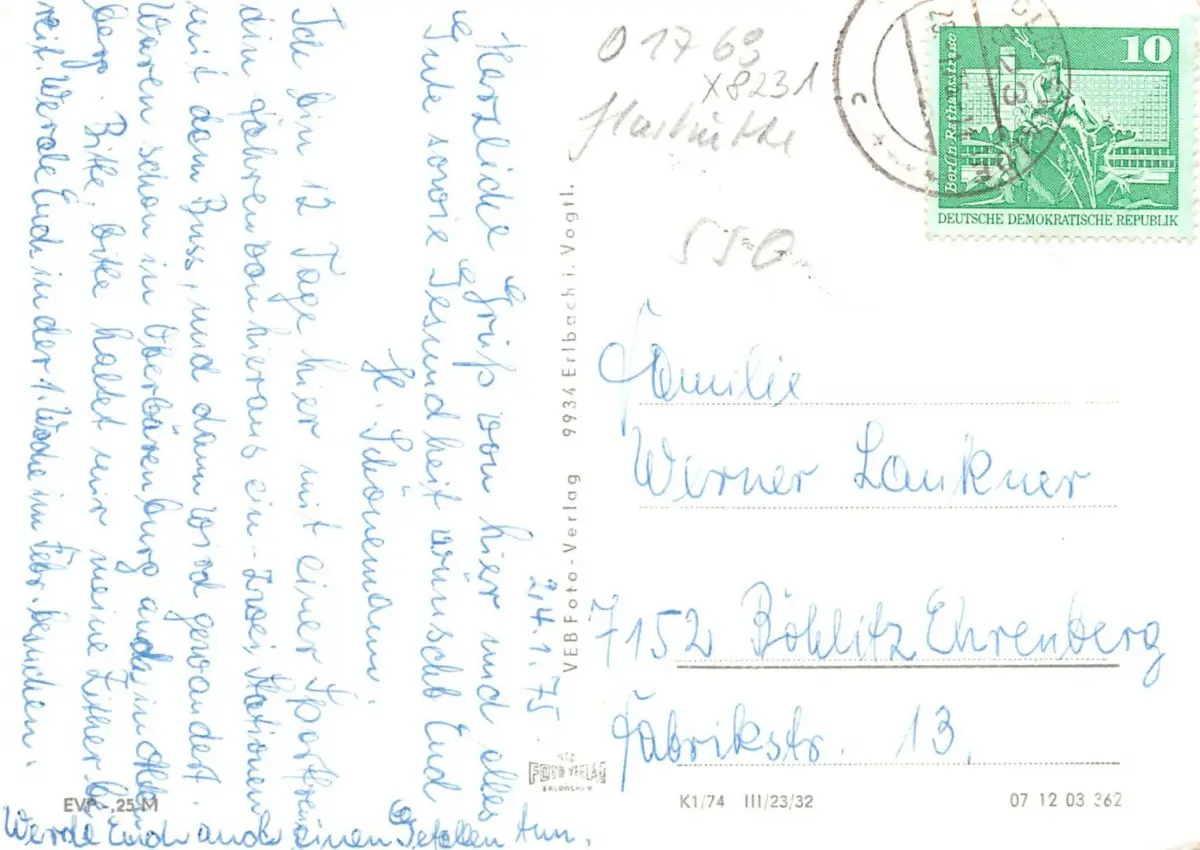 24.1.75
Herzliche Grüß von hier und alles
Gute sowie Gesundheit wünscht Euch
H. Schönemann.
Ich bin 12 Tage hier mit einer Sportfreun
din fahren von hier aus ein-zwei Stationen
mit dem Buss, und dann wird gewandert.
Waren schon in Oberbärenburg auch in Alten
berg. Bitte, bitte haltet mir meine Zither be
reit. Werde Euch in der 1. Woche im Febr. besuchen.
Werde Euch auch einen Gefallen tun.
EVP -,25 M
VEB Foto-Verlag 9934 Erlbach i. Vogtl.
FOTO-VERLAG
ERLBACH V.
O 1769
X8231
550
10
Berlin, Rathausstrasse
DEUTSCHE DEMOKRATISCHE REPUBLIK
Familie
Werner Lankner
7152 Böhlitz Ehrenberg
Fabrikstr. 13.
K1/74 III/23/32
07 12 03 362